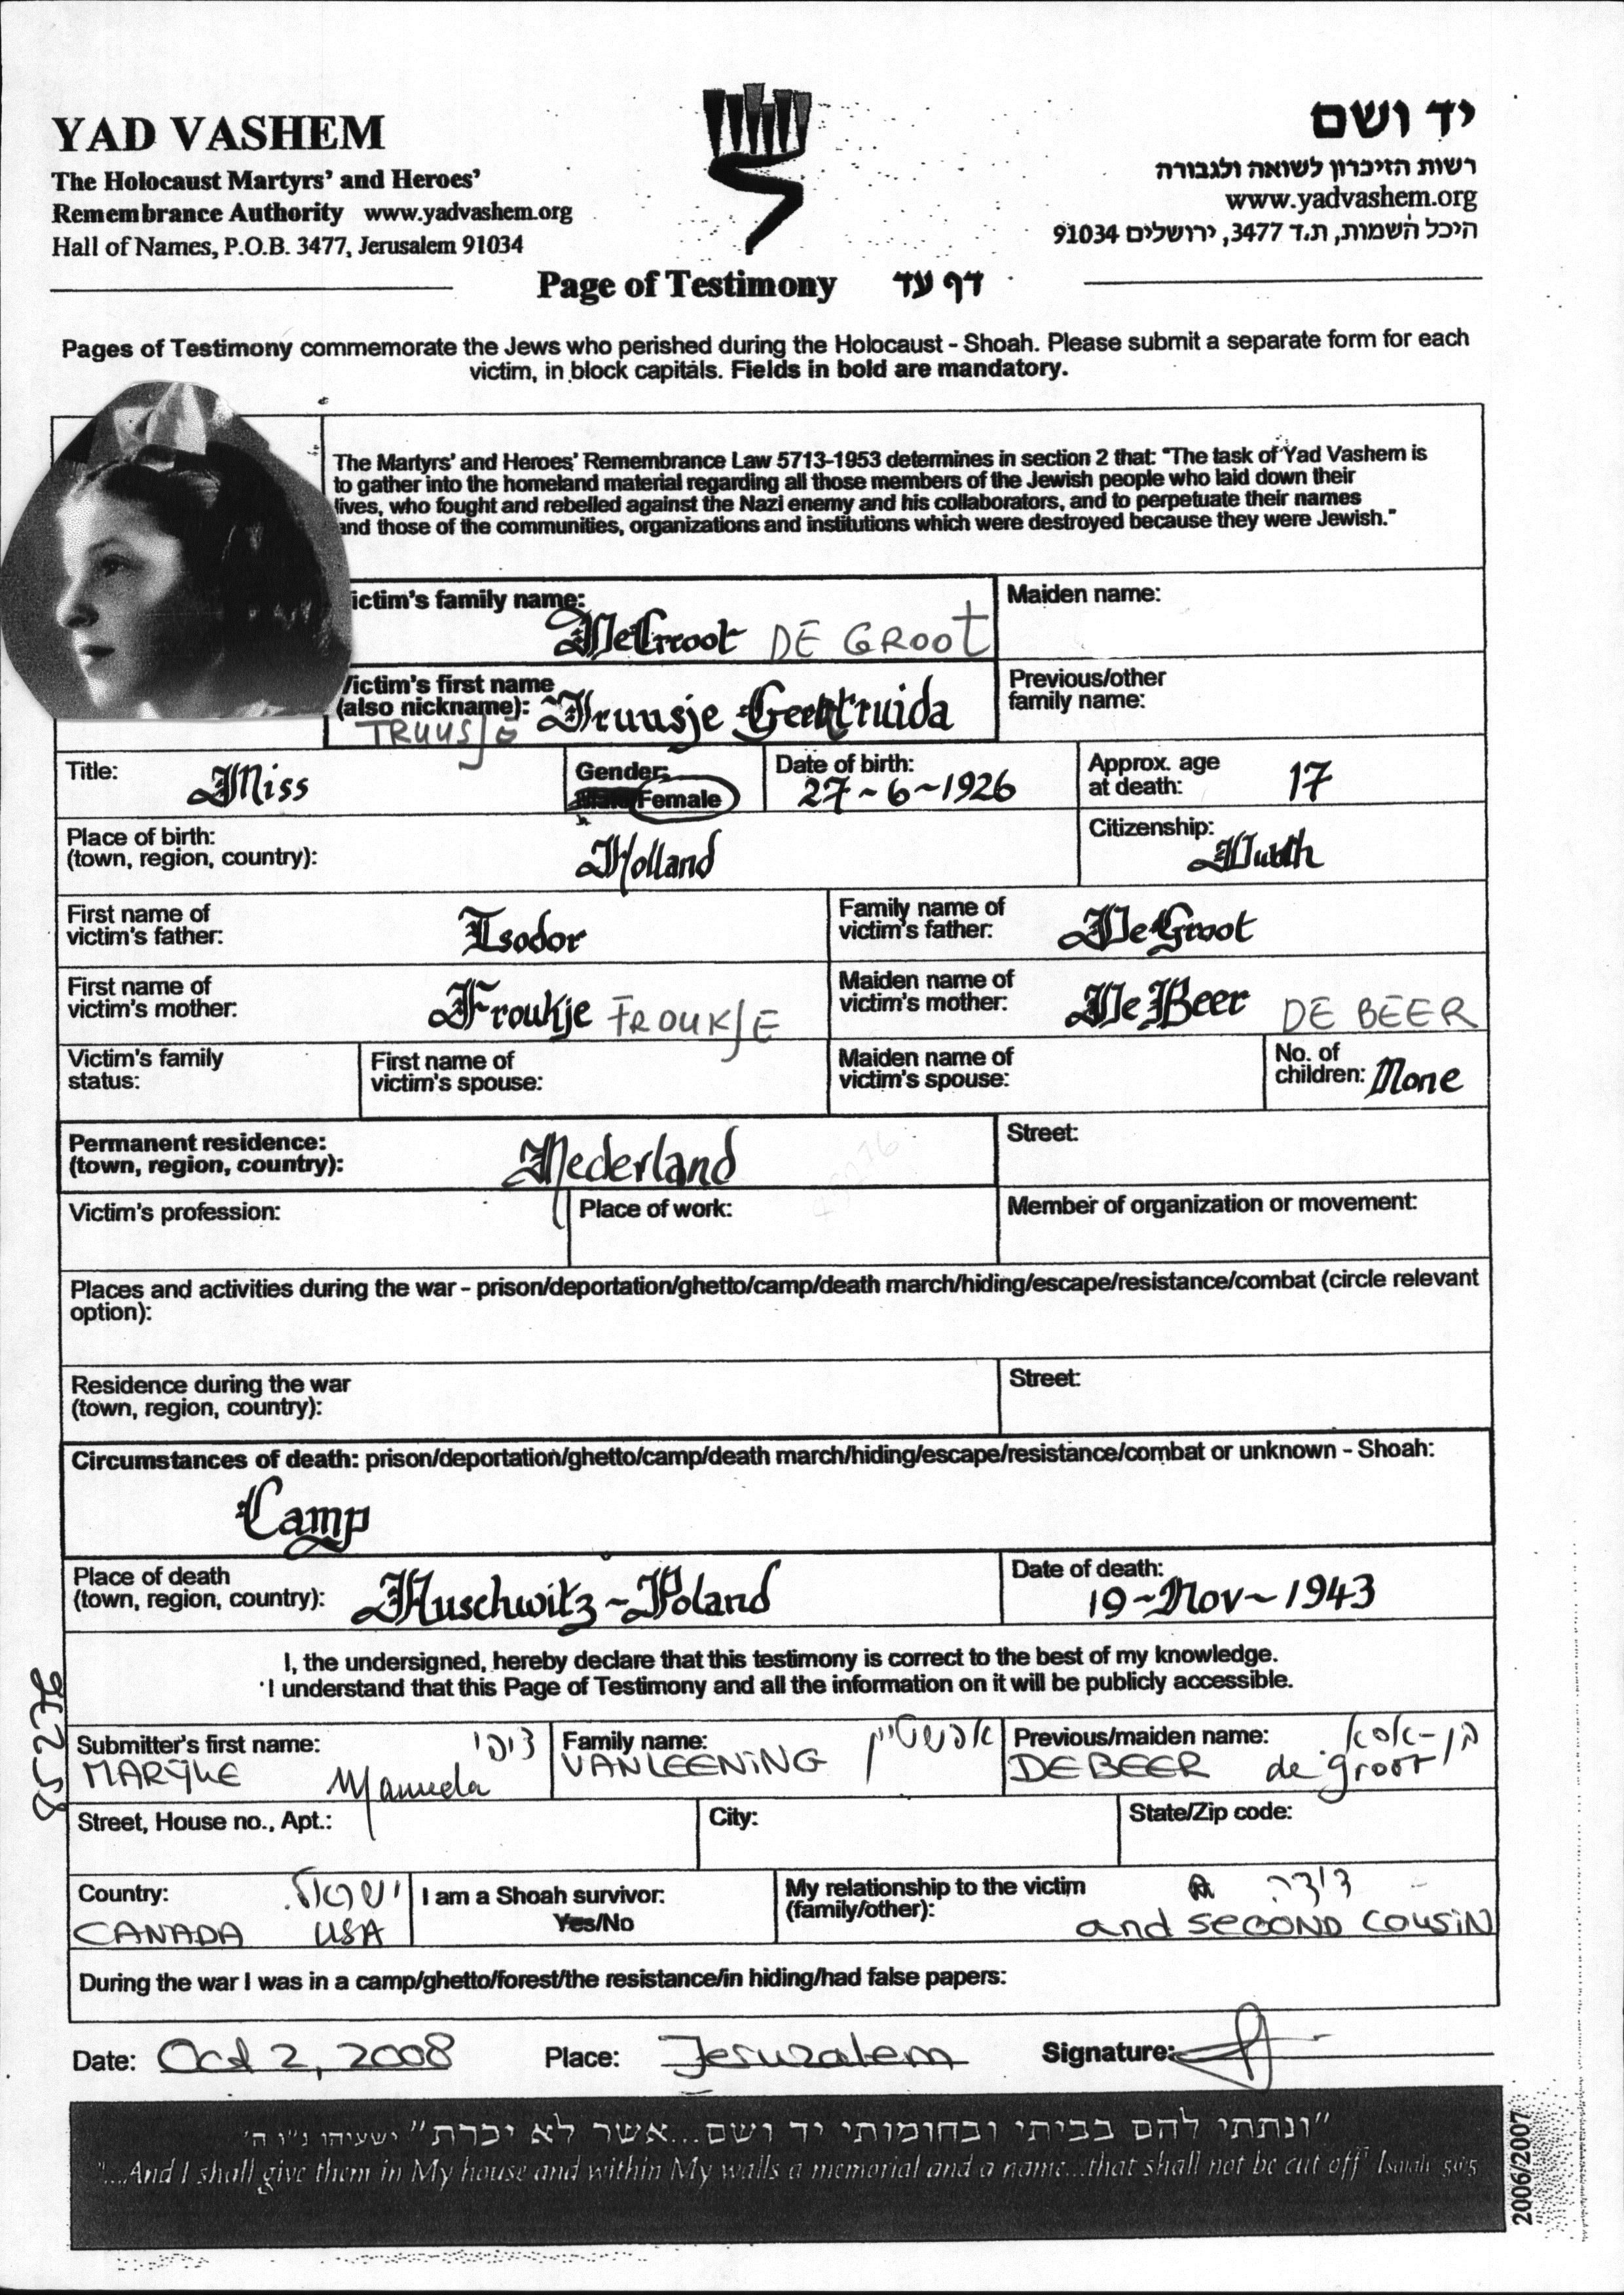 YAD VASHEM
The Holocaust Martyrs' and Heroes'
Remembrance Authority www.yadvashem.org
Hall of Names, P.O.B. 3477, Jerusalem 91034
יד ושם
רשות הזיכרון לשואה ולגבורה
www.yadvashem.org
היכל השמות, ת.ד 3477, ירושלים 91034
Page of Testimony דף עד
Pages of Testimony commemorate the Jews who perished during the Holocaust - Shoah. Please submit a separate form for each
victim, in block capitals. Fields in bold are mandatory.
The Martyrs' and Heroes' Remembrance Law 5713-1953 determines in section 2 that: "The task of Yad Vashem is
to gather into the homeland material regarding all those members of the Jewish people who laid down their
lives, who fought and rebelled against the Nazi enemy and his collaborators, and to perpetuate their names
and those of the communities, organizations and institutions which were destroyed because they were Jewish."
ictim's family name: DeGroot DE GROOT
Maiden name:
Victim's first name
(also nickname): Truusje Geertruida
TRUUSJE
Previous/other
family name:
Title: Miss
Gender: Female
Date of birth:
27-6-1926
Approx. age
at death: 17
Place of birth:
(town, region, country): Holland
Citizenship:
Dutch
First name of
victim's father: Isodor
Family name of
victim's father: DeGroot
First name of
victim's mother: Froukje FROUKJE
Maiden name of
victim's mother: De Beer DE BEER
Victim's family
status:
First name of
victim's spouse:
Maiden name of
victim's spouse:
No. of
children: None
Permanent residence:
(town, region, country): Nederland
Street:
Victim's profession:
Place of work:
Member of organization or movement:
Places and activities during the war - prison/deportation/ghetto/camp/death march/hiding/escape/resistance/combat (circle relevant
option):
Residence during the war
(town, region, country):
Street:
Circumstances of death: prison/deportation/ghetto/camp/death march/hiding/escape/resistance/combat or unknown - Shoah:
Camp
Place of death
(town, region, country): Auschwitz - Poland
Date of death:
19-Nov-1943
I, the undersigned, hereby declare that this testimony is correct to the best of my knowledge.
I understand that this Page of Testimony and all the information on it will be publicly accessible.
Submitter's first name: ציפי
MARIJKE Manuela
Family name: אפשטיין
VANLEENING
Previous/maiden name:
DEBEER de groot
Street, House no., Apt.:
City:
State/Zip code:
Country: ישראל
CANADA USA
I am a Shoah survivor:
Yes/No
My relationship to the victim
(family/other): דודה
and SECOND COUSIN
During the war I was in a camp/ghetto/forest/the resistance/in hiding/had false papers:
Date: Oct 2, 2008 Place: Jeruzalem Signature:
"ונתתי להם בביתי ובחומותי יד ושם...אשר לא יכרת" ישעיהו נ"ו ה'
"...And I shall give them in My house and within My walls a memorial and a name...that shall not be cut off" Isaiah 56:5
2006/2007